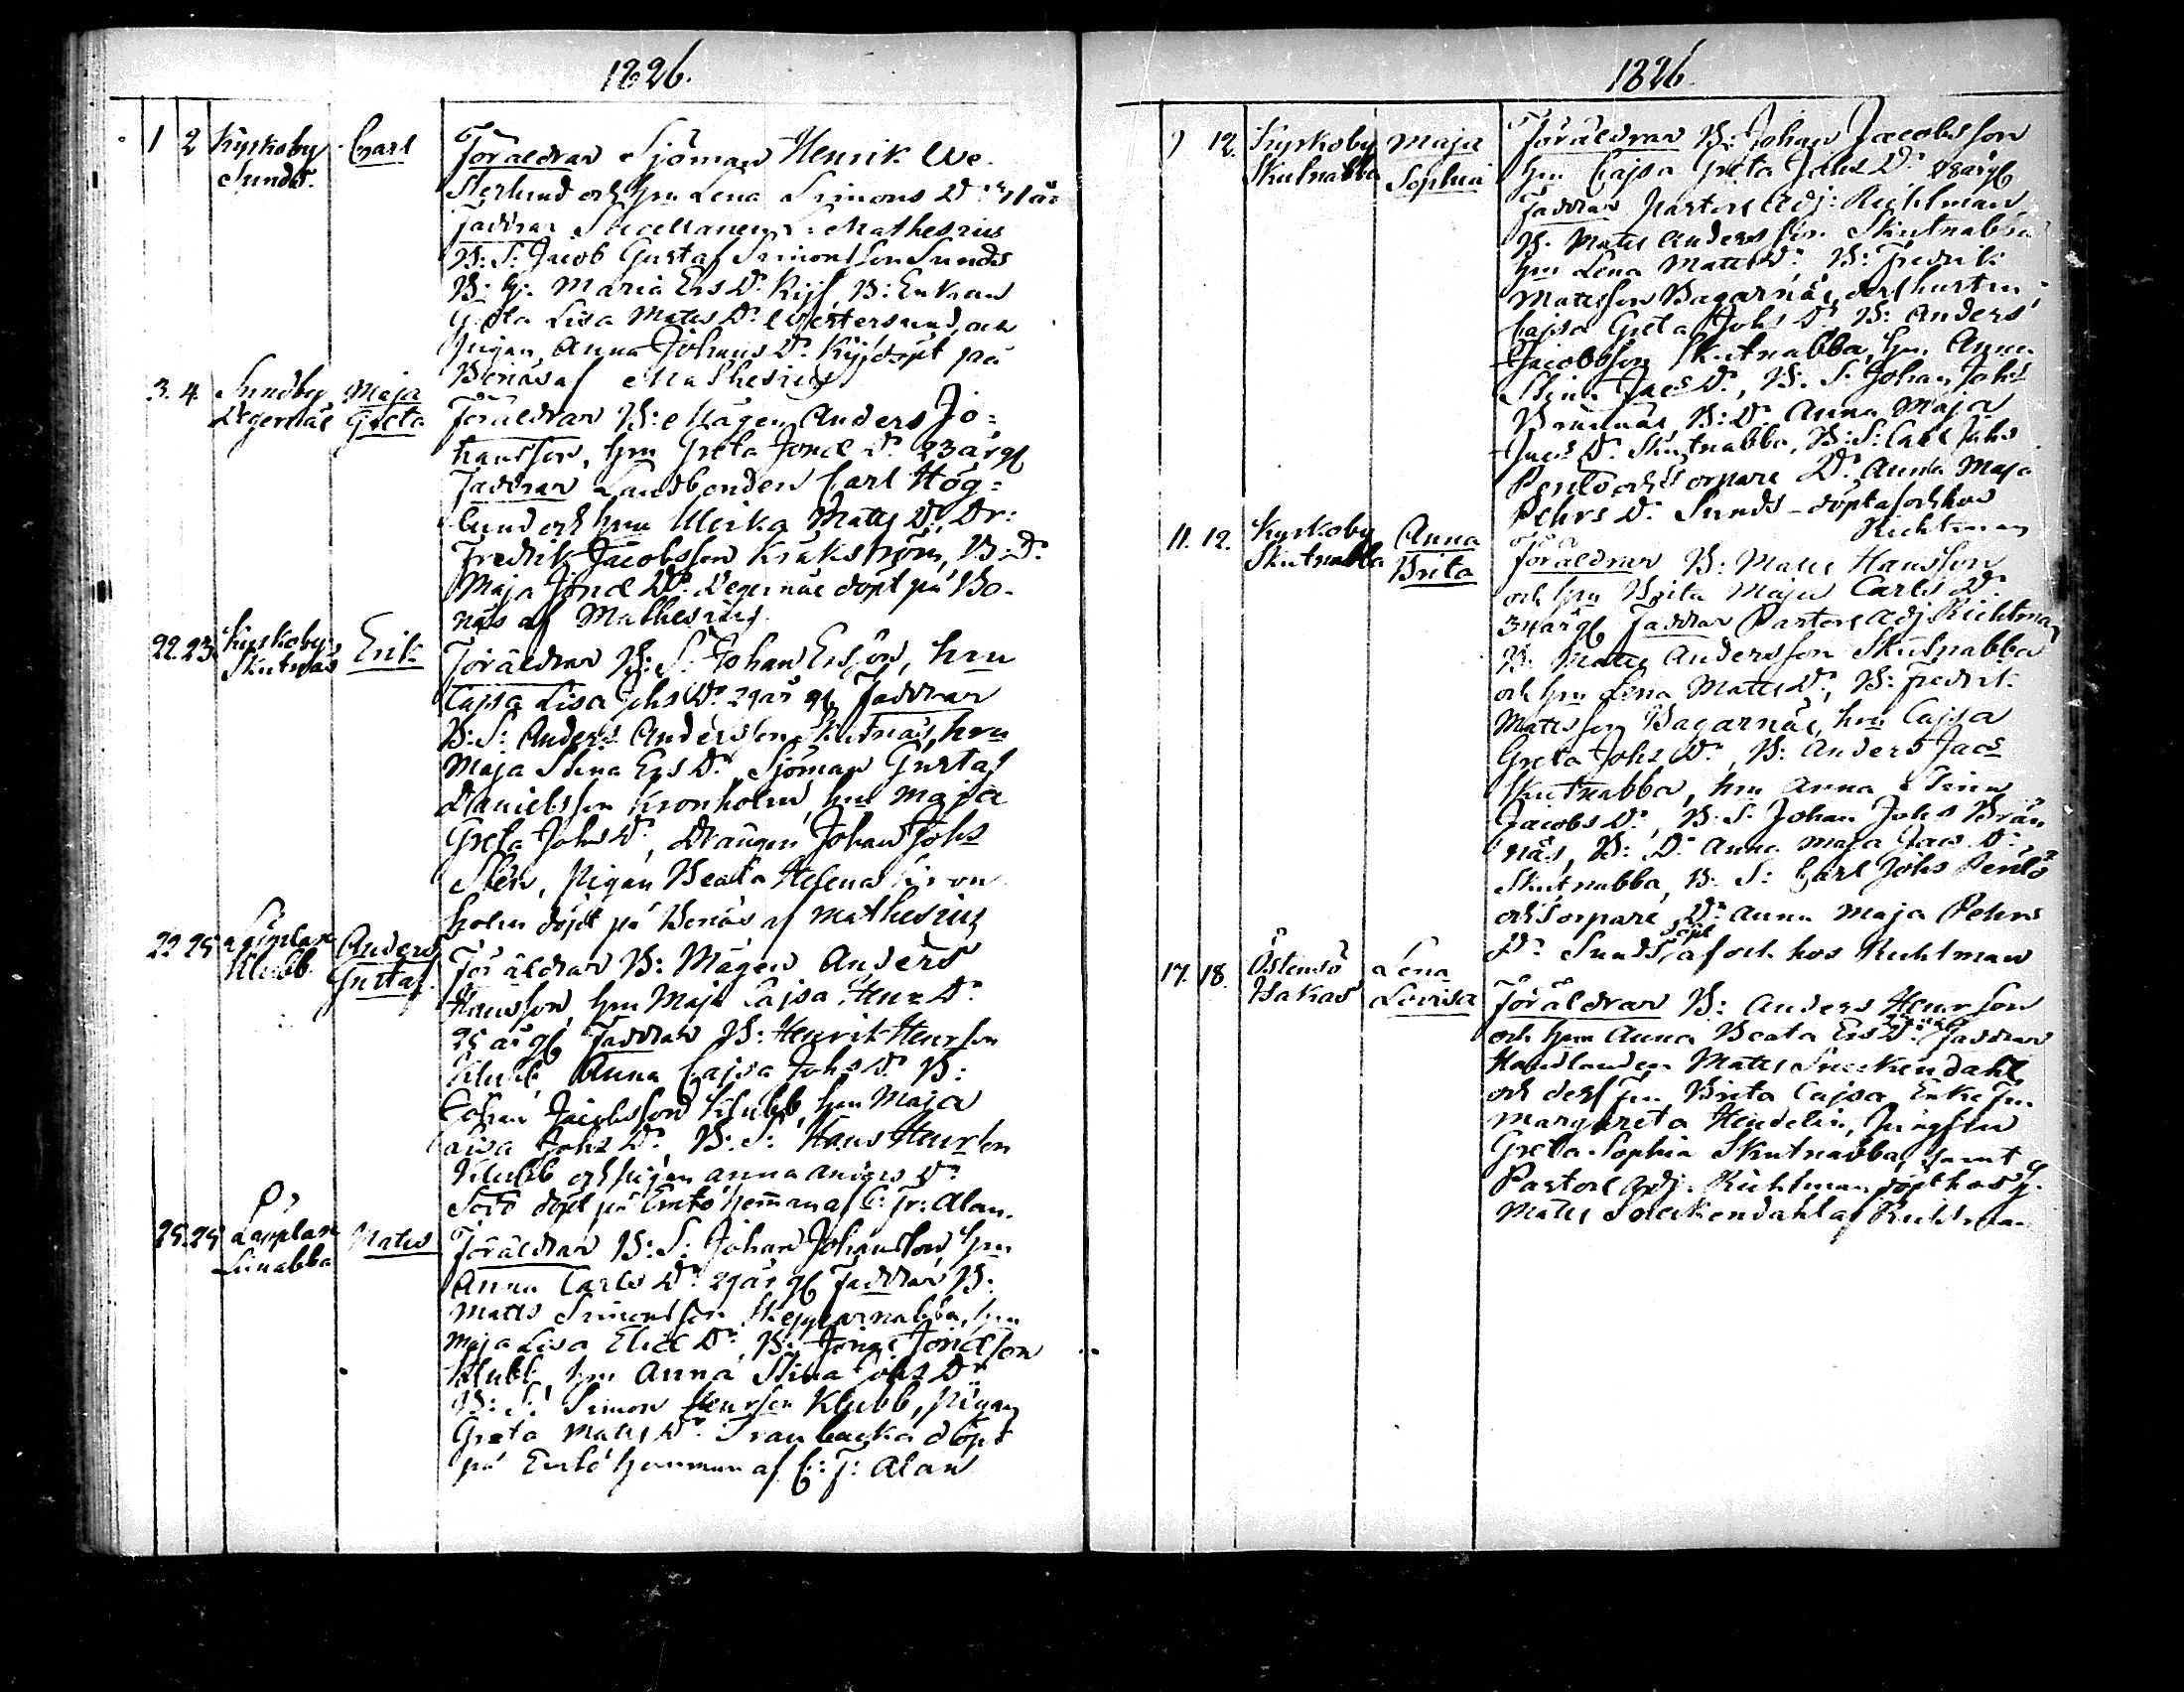 1826.
1 2 Kyrkoby Carl Föräldrar Sjöman Henrik We-
Sunds. sterlund och hu Lena Simons Dr
faddrar Mathesius
B: S: Jacob Gustaf Simonsson Sunds
B: h: Maria Ers Dr B: Enkan
Greta Lisa Matts Dr Westersund, och
pigan Anna Johans Dr döpt på
Benäs af Mathesius
3. 4. Sundby Maja
Degernäs Greta Föräldrar B: Mågen Anders Jo-
hansson, hu Greta Jons Dr 23 år gl
Faddrar Landbonden Carl Hög-
lund och hu Ulrika Matts Dr, Dr:
Fredrik Jacobsson Kråkström, B: Dr
Maja Jons Dr Degernäs döpt på Be-
näs af Mathesius
22. 23. Kyrkoby Erik Föräldrar B: S: Johan Ersson, hru
Skutnäs Cajsa Lisa Johs Dr 29 år gl Faddrar
B: S: Anders Andersson Skutnäs, hru
Maja Stina Ers Dr, Sjöman Gustaf
Danielsson Kronholm, hru Maja
Greta Johs Dr, Drängen Johan Johs
Sten, Pigan Beata Helena Kron
holm döpt på Benäs af Mathesius
22 25 Anders
Klubb Gustaf Föräldrar B: Mågen Anders
Hansson, hru Maja Cajsa Henr Dr
25 år gl Faddrar B: Henrik Henrson
Klubb, Anna Cajsa Johs Dr B:
Johan Jacobsson Klubb, hru Maja
Lisa Johs Dr, B: S: Hans Henrson
Klubb och pigan Anna Anders Dr
döpt på hemman af C: Fr: Alan.
25. 29 Lapplax Matts Föräldrar B: S: Johan Johansson hru
Anna Carls Dr 29 år gl Faddrar B:
Matts Simonsson hru
Maja Lisa Elis Dr, B: Jonas Jonsson
Klubb, hru Anna Stina Johs Dr
B: S: Simon Henrson Klubb, Pigan
Greta Matts Dr döpt
på hemman af C: F: Alan
1826.
12. Kyrkoby Maja Föräldrar B: Johan Jacobsson
Skutnabba Sophia hru Cajsa Greta Johs Dr 28 år gl
Faddrar Pastors Adj: Richtman
B. Matts Andersson Skutnabba
hru Lena Matts Dr B: Fredrik
Mattsson Bagarnäs, dess hustru
Cajsa Greta Johs Dr B: Anders
Jacobsson Skutnabba, hru Anna
Stina Jacs Dr, B. S: Johan Johs
Brännäs, B: Dr Anna Maja
Jacs Dr Skutnabba, B: S: Carl Johs
Penlö och Torpare Dr Anna Maja
Pehrs Dr Sunds - döpt af och hos
Richtman
11. 12. Kyrkoby Anna
Skutnabba Brita Föräldrar B: Matts Hansson
och hru Brita Maja Carls Dr
34 år gl Faddrar Pastors Adj Richtman
B. Matts Andersson Skutnabba
och hru Lena Matts Dr, B: Fredrik
Mattsson Bagarnäs, hru Cajsa
Greta Johs Dr, B: Anders Jacs
Skutnabba, hru Anna Stina
Jacobs Dr, B: S: Johan Johs Brän
näs, B: Dr Anna Maja Jacs Dr
Skutnabba, B: S: Carl Johs Penlö
och Torpare Dr Anna Maja Pehrs
Dr Sunds, döpt af och hos Richtman
17. 18. Östensö Lena
Hakas Lovisa Föräldrar B: Anders Henrson
och hru Anna Beata Ers Dr Faddrar
Handlanden Matts Sneckendahl
och dess fru Brita Cajsa, Enkefru
Margareta Hendelin, Jungfru
Greta Sophia Skutnabba, samt
Pastors Adj. Richtman döpt hos h.
Matts Sneckendahl af Richtman